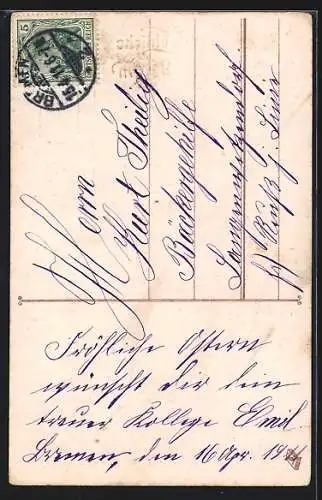 5
BREMEN
Herrn
Kurt Theilig
Bäckergehilfe
Langenwetzendorf
Reuß j. Linie
Fröhliche Ostern
wünscht dir dein
treuer Kollege Emil.
Bremen, den 16 Apr. 19